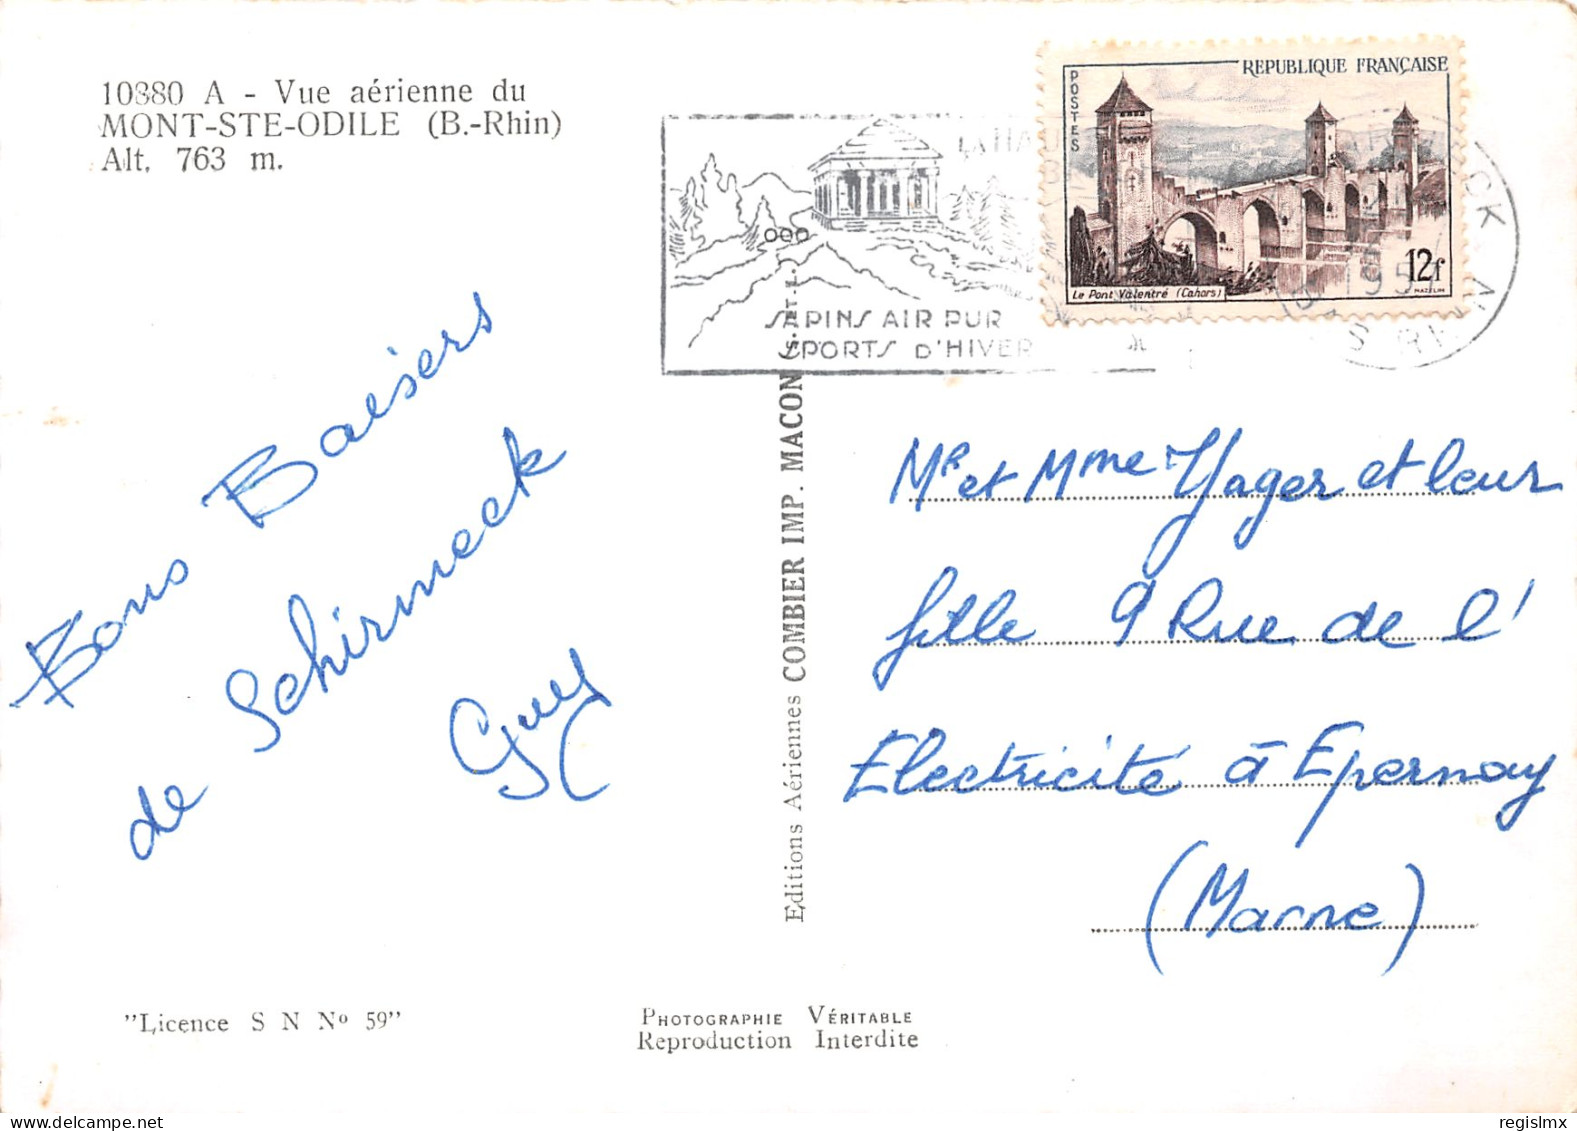 10880 A - Vue aérienne du
MONT-STE-ODILE (B.-Rhin)
Alt. 763 m.
SAPINS AIR PUR
SPORTS D'HIVER
REPUBLIQUE FRANÇAISE
POSTES
12f
Le Pont Valentré (Cahors)
C. MAZELIN
BAS RHIN
Bons Baisers
de Schirmeck
Guy
Editions Aériennes COMBIER IMP. MACON
Mr et Mme Yager et leur
fille 9 Rue de l'
Electricité à Epernay
(Marne)
"Licence S N No 59"
PHOTOGRAPHIE VÉRITABLE
Reproduction Interdite
regislmx